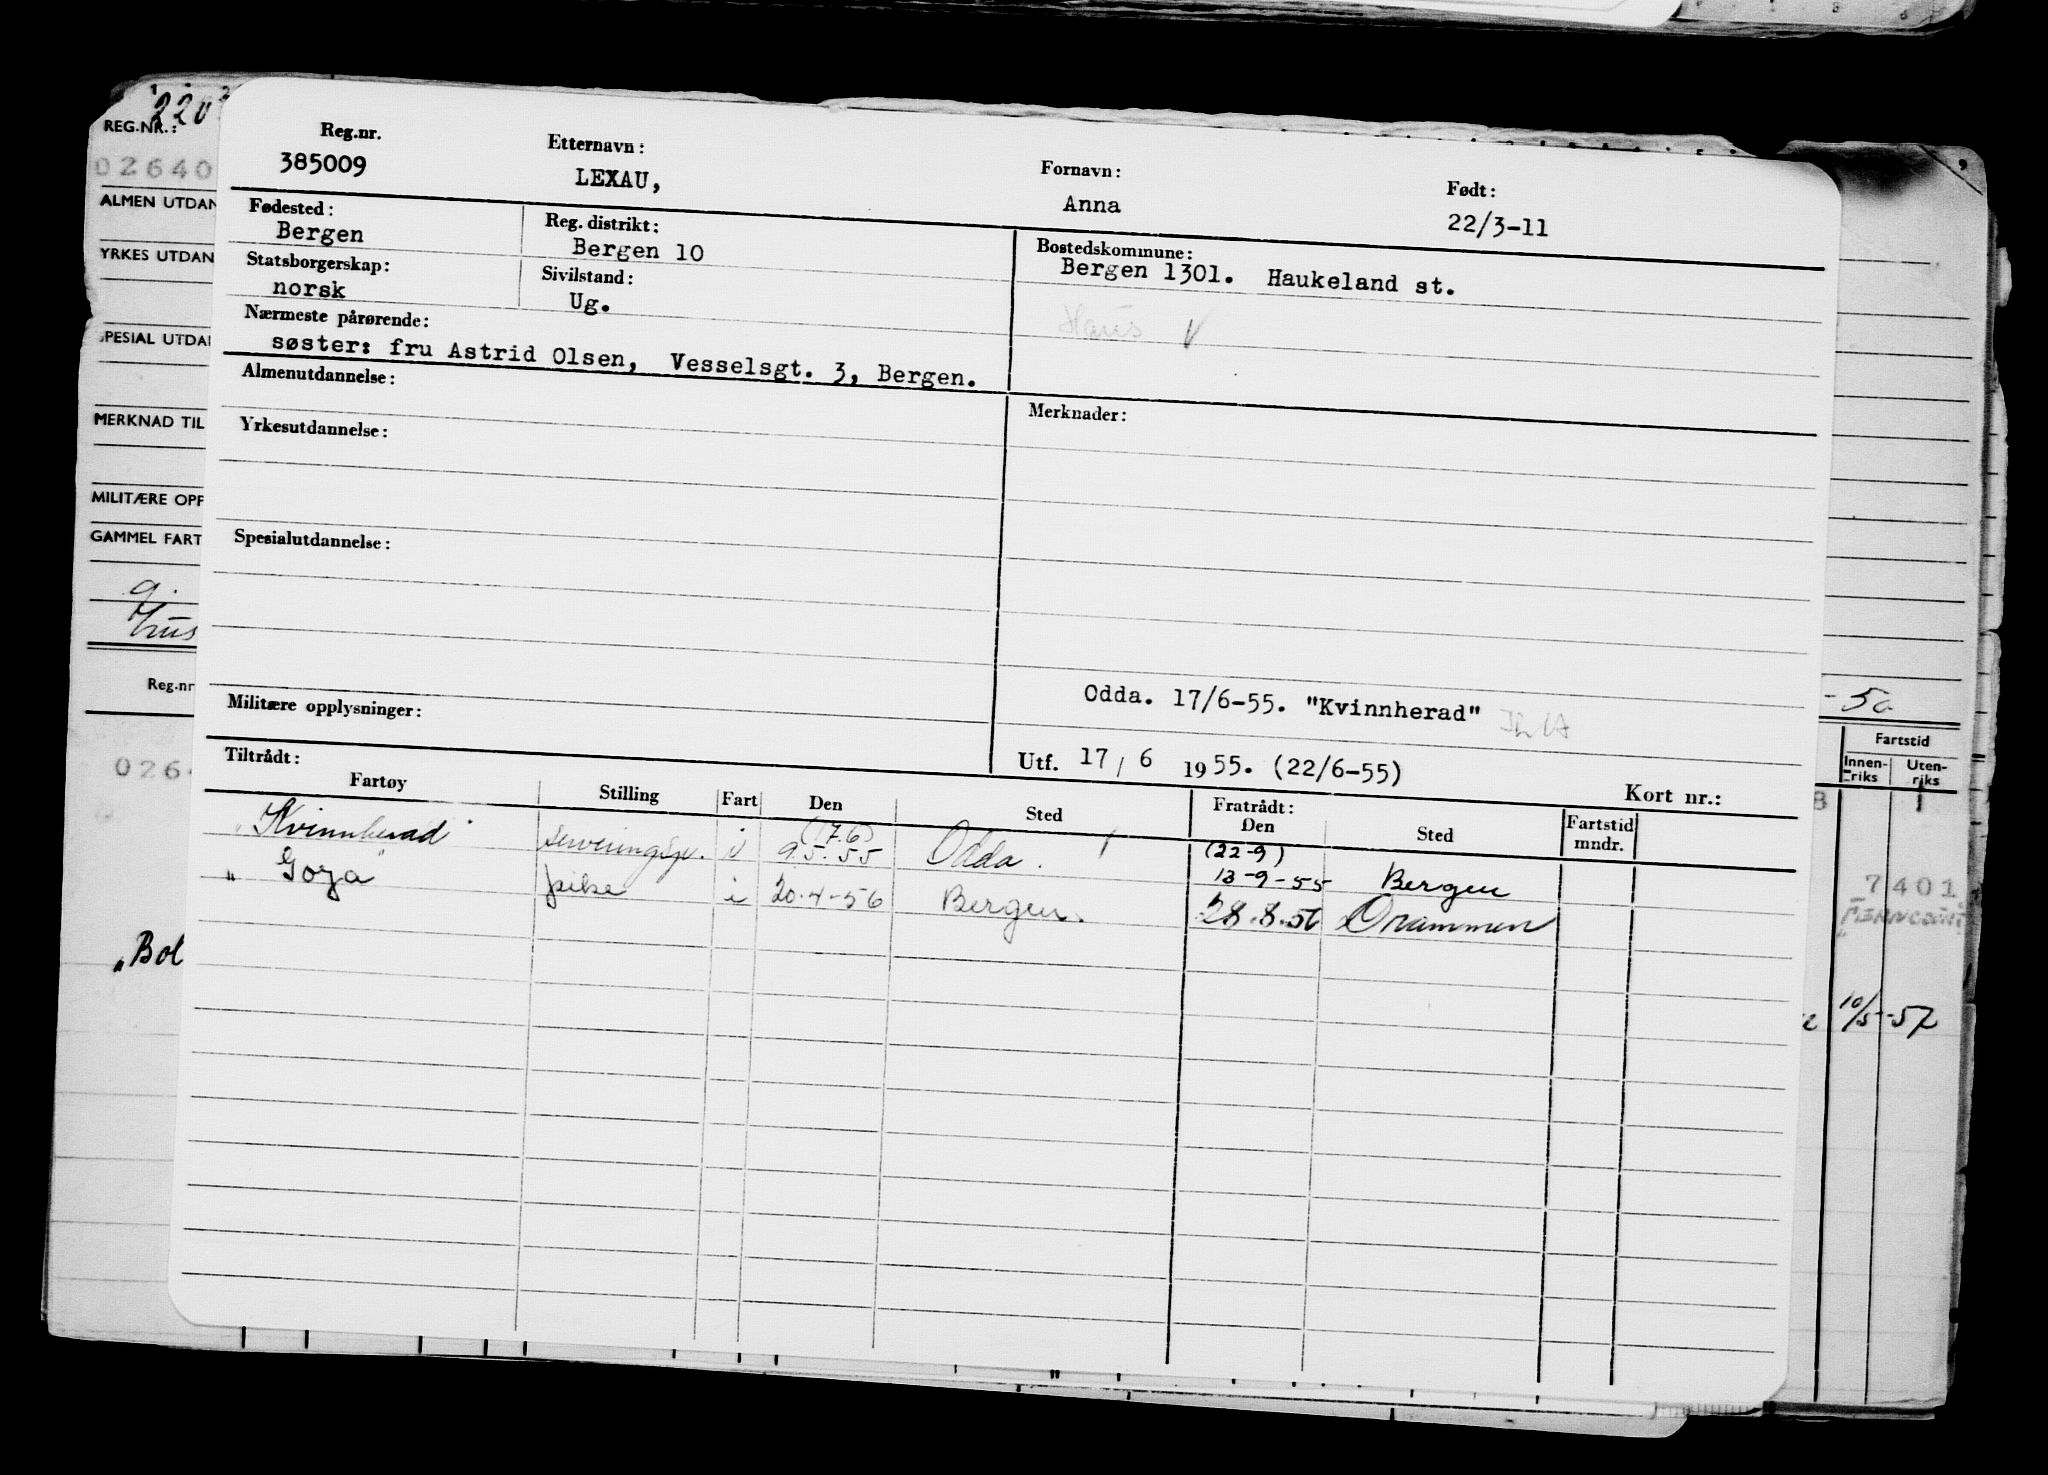 220
REG.NR.:
02640
ALMEN UTDAN
YRKES UTDAN
SPESIAL UTDA
MERKNAD TIL
MILITÆRE OPP
GAMMEL FART
Reg.nr
0264
„Bol
Reg.nr.
385009
Etternavn:
LEXAU,
Fornavn:
Anna
Født:
22/3-11
Fødested:
Bergen
Reg. distrikt:
Bergen 10
Bostedskommune:
Bergen 1301. Haukeland st.
Statsborgerskap:
norsk
Sivilstand:
Ug.
Haus V
Nærmeste pårørende:
søster: fru Astrid Olsen, Vesselsgt. 3, Bergen.
Almenutdannelse:
Merknader:
Yrkesutdannelse:
Spesialutdannelse:
Odda. 17/6-55. "Kvinnherad"
Militære opplysninger:
Utf. 17/6 1955. (22/6-55)
Kort nr.:
Tiltrådt:
Fartøy Stilling Fart Den Sted Fratrådt: Den Sted Fartstid mndr.
"Kvinnherad" serveringspi. i (17.6) 9.5.55 Odda. (22-9) 13-9-55 Bergen
"Goya" pike i 20.4-56 Bergen. 28.8.56 Drammen
-50
Fartstid
Innen-riks
Uten-riks
8 1
7401
10/5-57